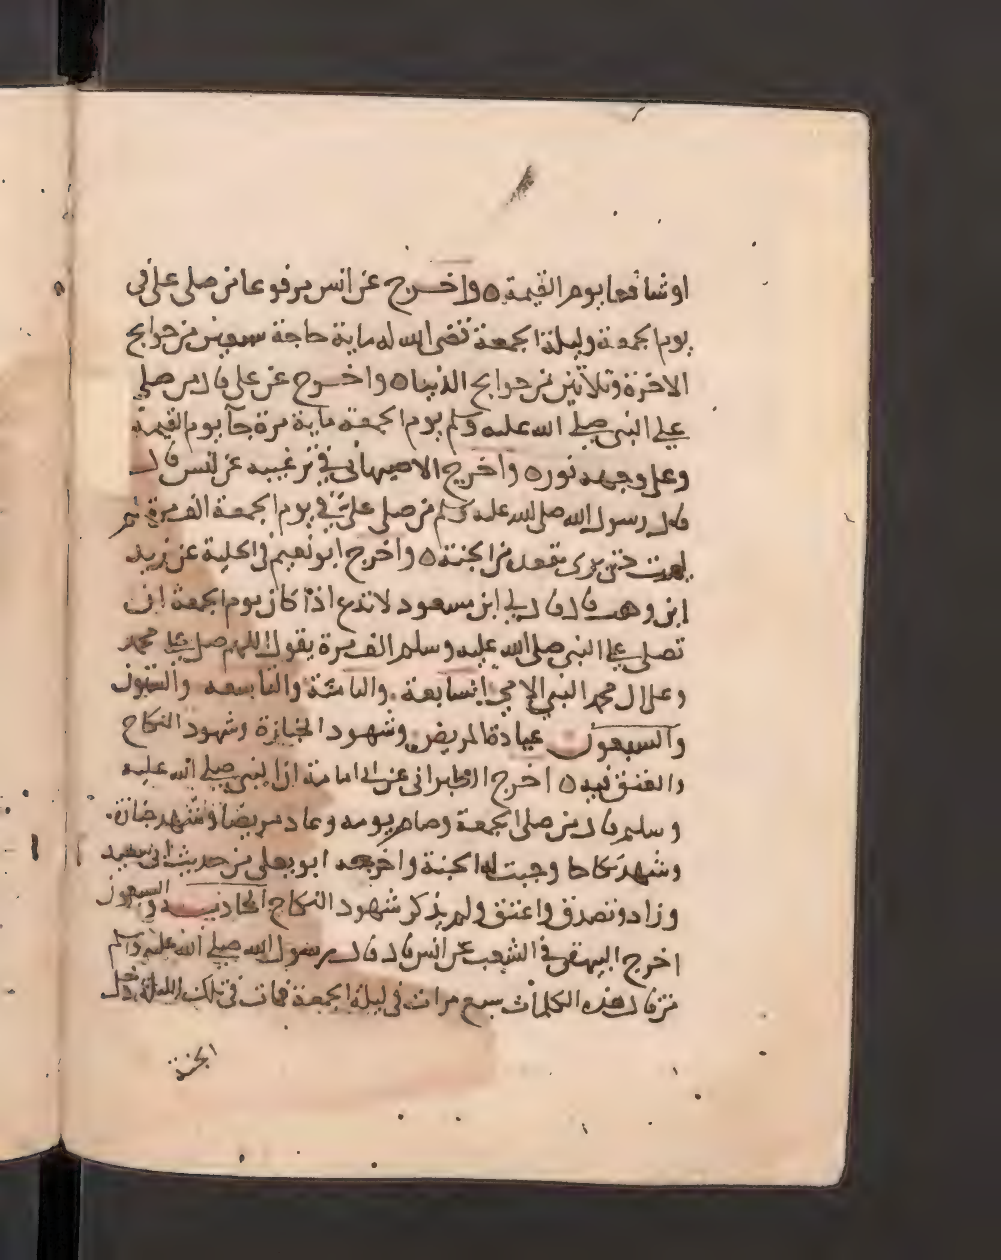 او شافعا يوم القيمة ٥ واخرج عن انس مرفوعا من صلى علي في
يوم الجمعة وليلة الجمعة قضى الله له ماية حاجة سبعين من حوايج
الاخرة وثلاثين من حوايج الدنيا ٥ واخرج عن علي قال من صلى
على النبي صلى الله عليه وسلم يوم الجمعة ماية مرة جآ يوم القيمة
وعلى وجهه نور ٥ واخرج الاصبهاني في ترغيبه عن انس قال
قال رسول الله صلى الله عليه وسلم من صلى علي في يوم الجمعة الف مرة لم
يمت حتى يرى مقعده من الجنة ٥ واخرج ابو نعيم في الحلية عن زيد
ابن وهب قال قال لي ابن مسعود لا تدع اذا كان يوم الجمعة ان
تصلي على النبي صلى الله عليه وسلم الف مرة يقول اللهم صل على محمد
وعلى ال محمد النبي الامي السابعة والثامنة والتاسعة والستون
والسبعون عيادة المريض وشهود الجنازة وشهود النكاح
والعتق فيه ٥ اخرج الطبراني عن ابي امامة ان النبي صلى الله عليه
وسلم قال من صلى الجمعة وصام يومه وعاد مريضا وشهد جنازة
وشهد نكاحا وجبت له الجنة واخرجه ابو يعلى من حديث ابي سعيد
وزاد وتصدق واعتق ولم يذكر شهود النكاح الحادية والسبعون
اخرج البيهقي في الشعب عن انس قال قال رسول الله صلى الله عليه وسلم
من قال هذه الكلمات سبع مرات في ليلة الجمعة فمات في تلك الليلة دخل
الجنة